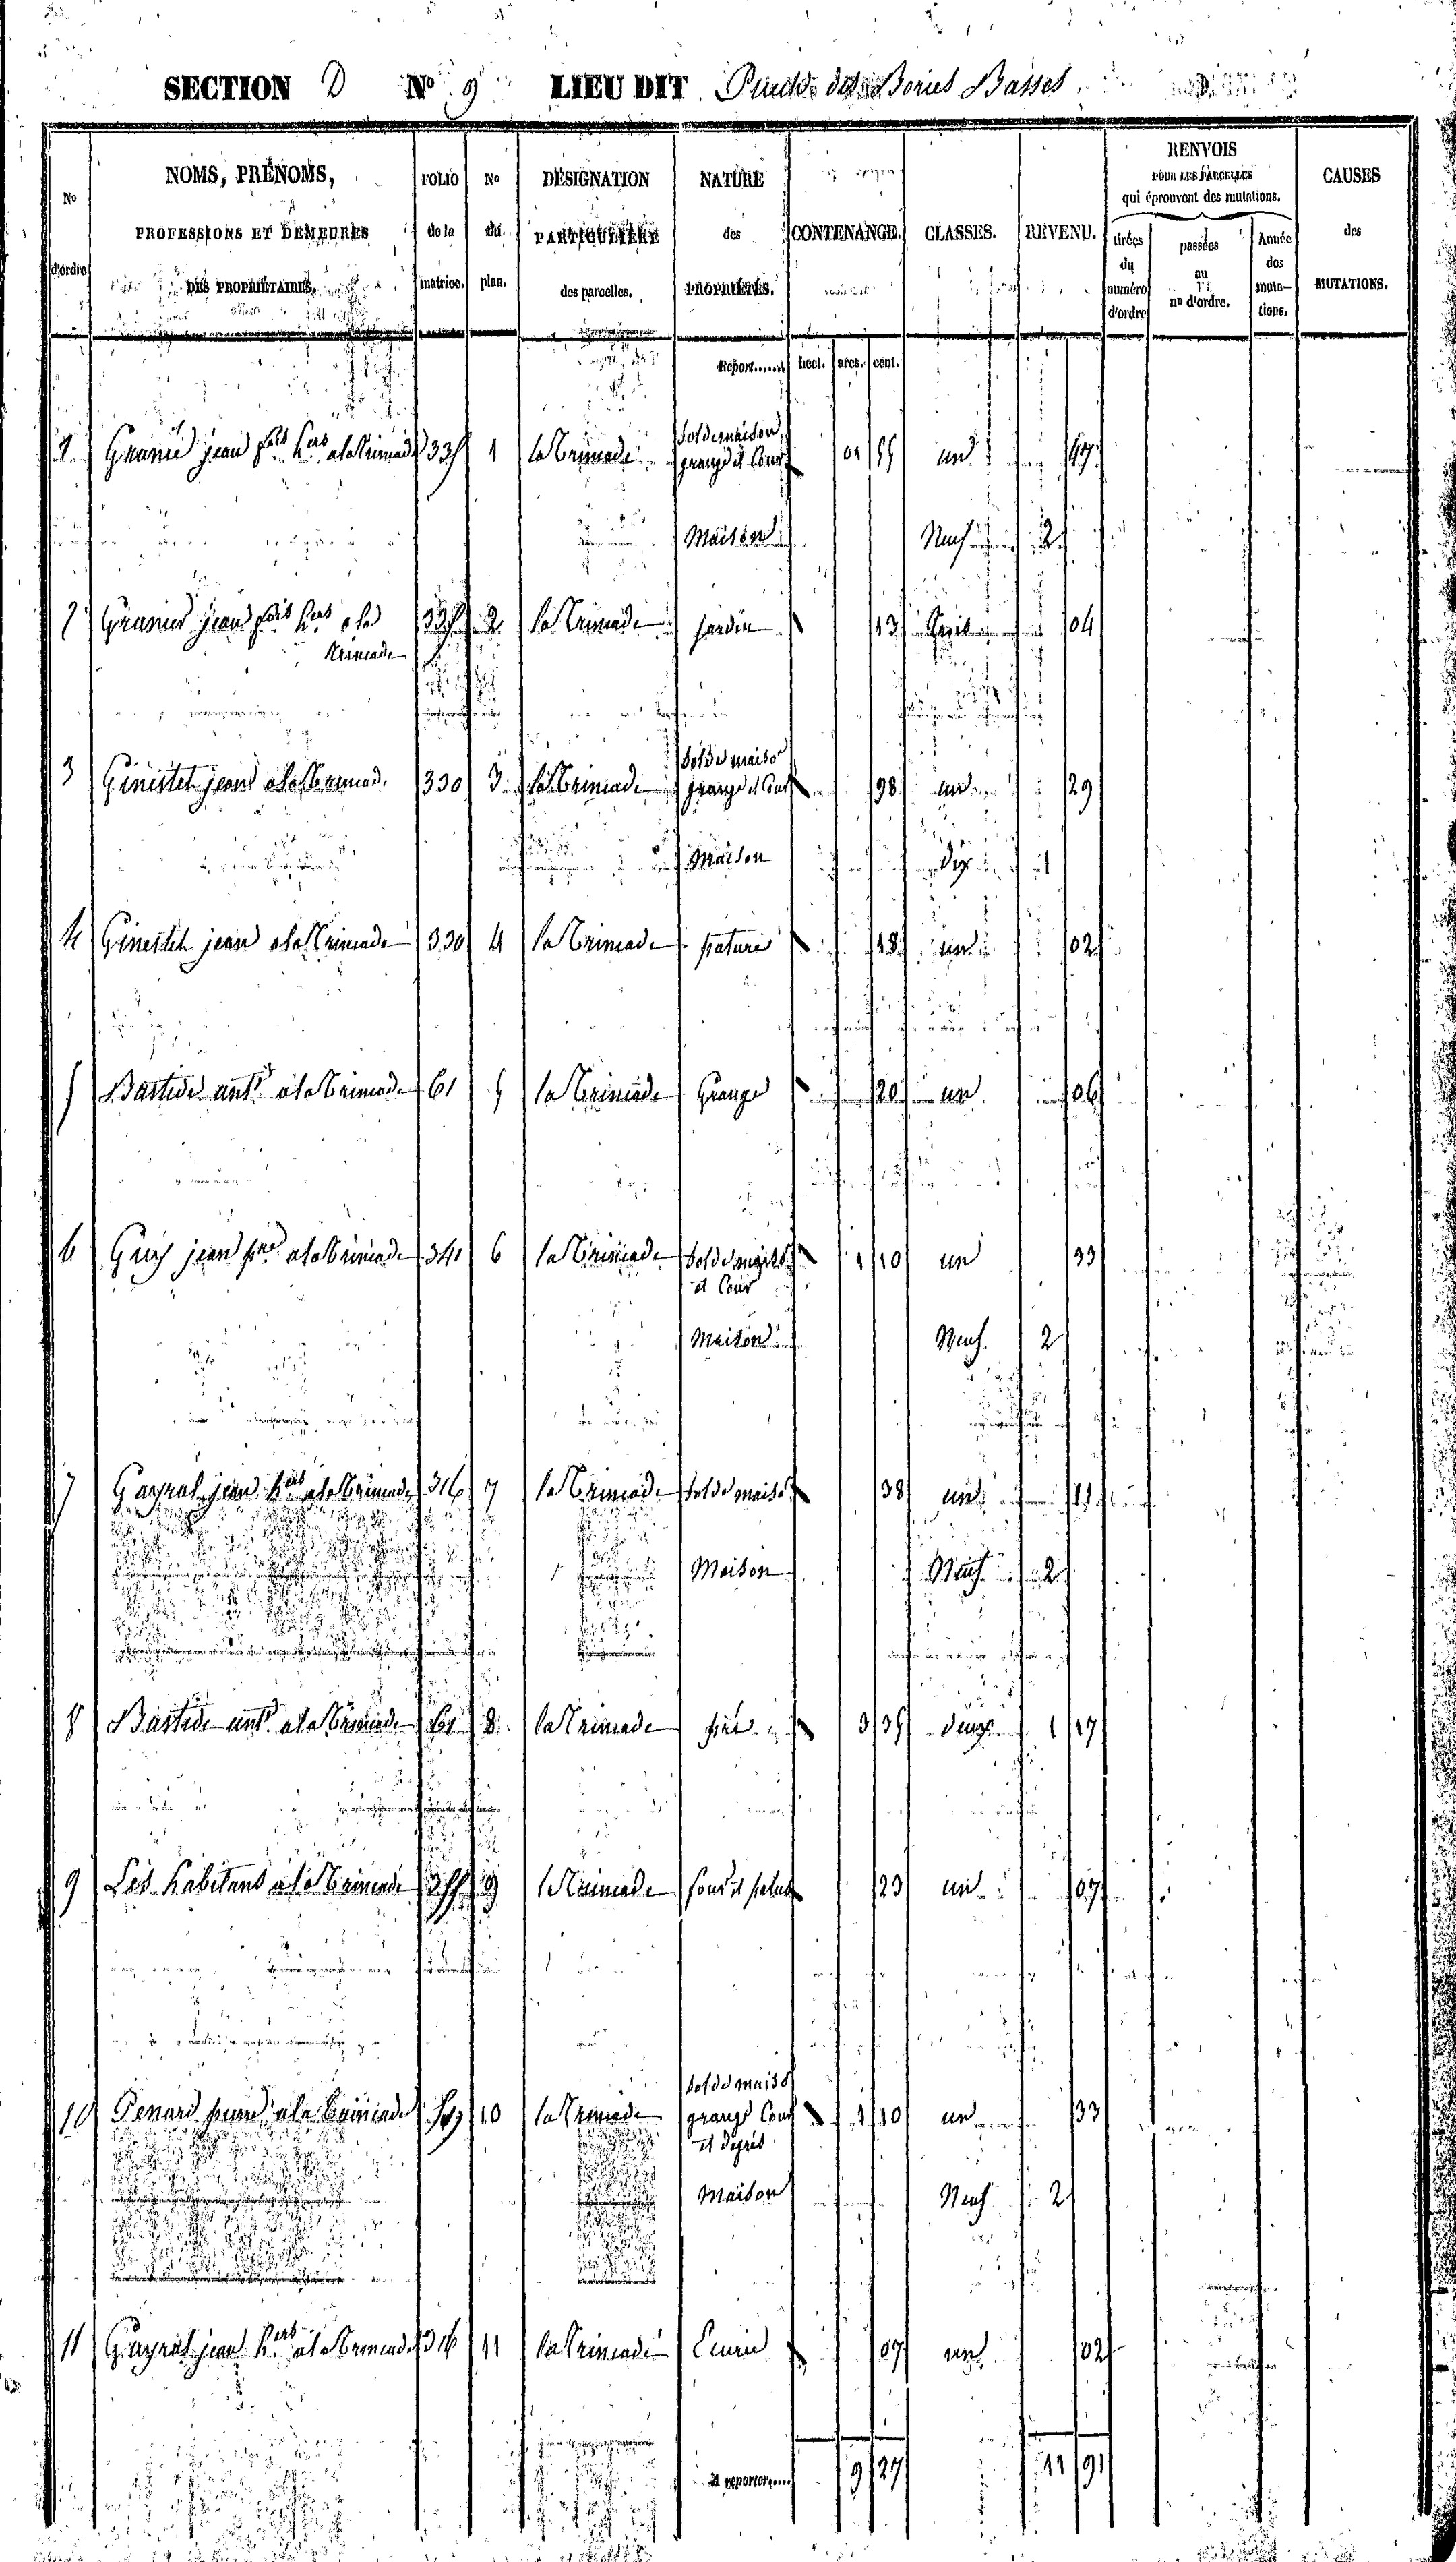 SECTION D No 9 LIEU DIT des Bories Basses
No d'ordre
NOMS, PRÉNOMS,
PROFESSIONS ET DEMEURES
DES PROPRIÉTAIRES.
FOLIO de la matrice.
No du plan.
DÉSIGNATION PARTICULIÈRE des parcelles.
NATURE des PROPRIÉTÉS.
CONTENANCE.
CLASSES.
REVENU.
RENVOIS
POUR LES PARCELLES
qui éprouvent des mutations.
tirées du numéro d'ordre
passées au no d'ordre.
Année des mutations.
CAUSES des MUTATIONS.
Report...... hect. ares. cent.
1 jean hers a la Trimade 335 1 la Trimade Sol de maison grange et Cour 01 55 un 47
Maison Neuf 2
2 jean hers a la Trimade 335 2 la Trimade jardin 13 04
3 Ginestet jean a la Trimade 330 3 la Trimade Sol de maiso grange et Cour 98 un 29
Maison dix 1
4 Ginestet jean a la Trimade 330 4 la Trimade pature 18 un 02
5 Bastide ant a la Trimade 61 5 la Trimade Grange 20 un 06
6 Guy jean a la Trimade 341 6 la Trimade Sol de maiso et Cour 1 10 un 33
Maison Neuf 2
7 Gayral jean hers a la Trimade 316 7 la Trimade Sol de maiso 38 un 11
Maison Neuf 2
8 Bastide ant a la Trimade 61 8 la Trimade pré 3 35 deux 1 17
9 Les habitans a la Trimade 9 la Trimade four et patus 23 un 07
10 a la Trimade 10 la Trimade Sol de maiso grange Cour et degrés 1 10 un 33
Maison Neuf 2
11 Gayral jean hers a la Trimade 316 11 la Trimade Ecurie 07 un 02
A reporter..... 9 27 11 91